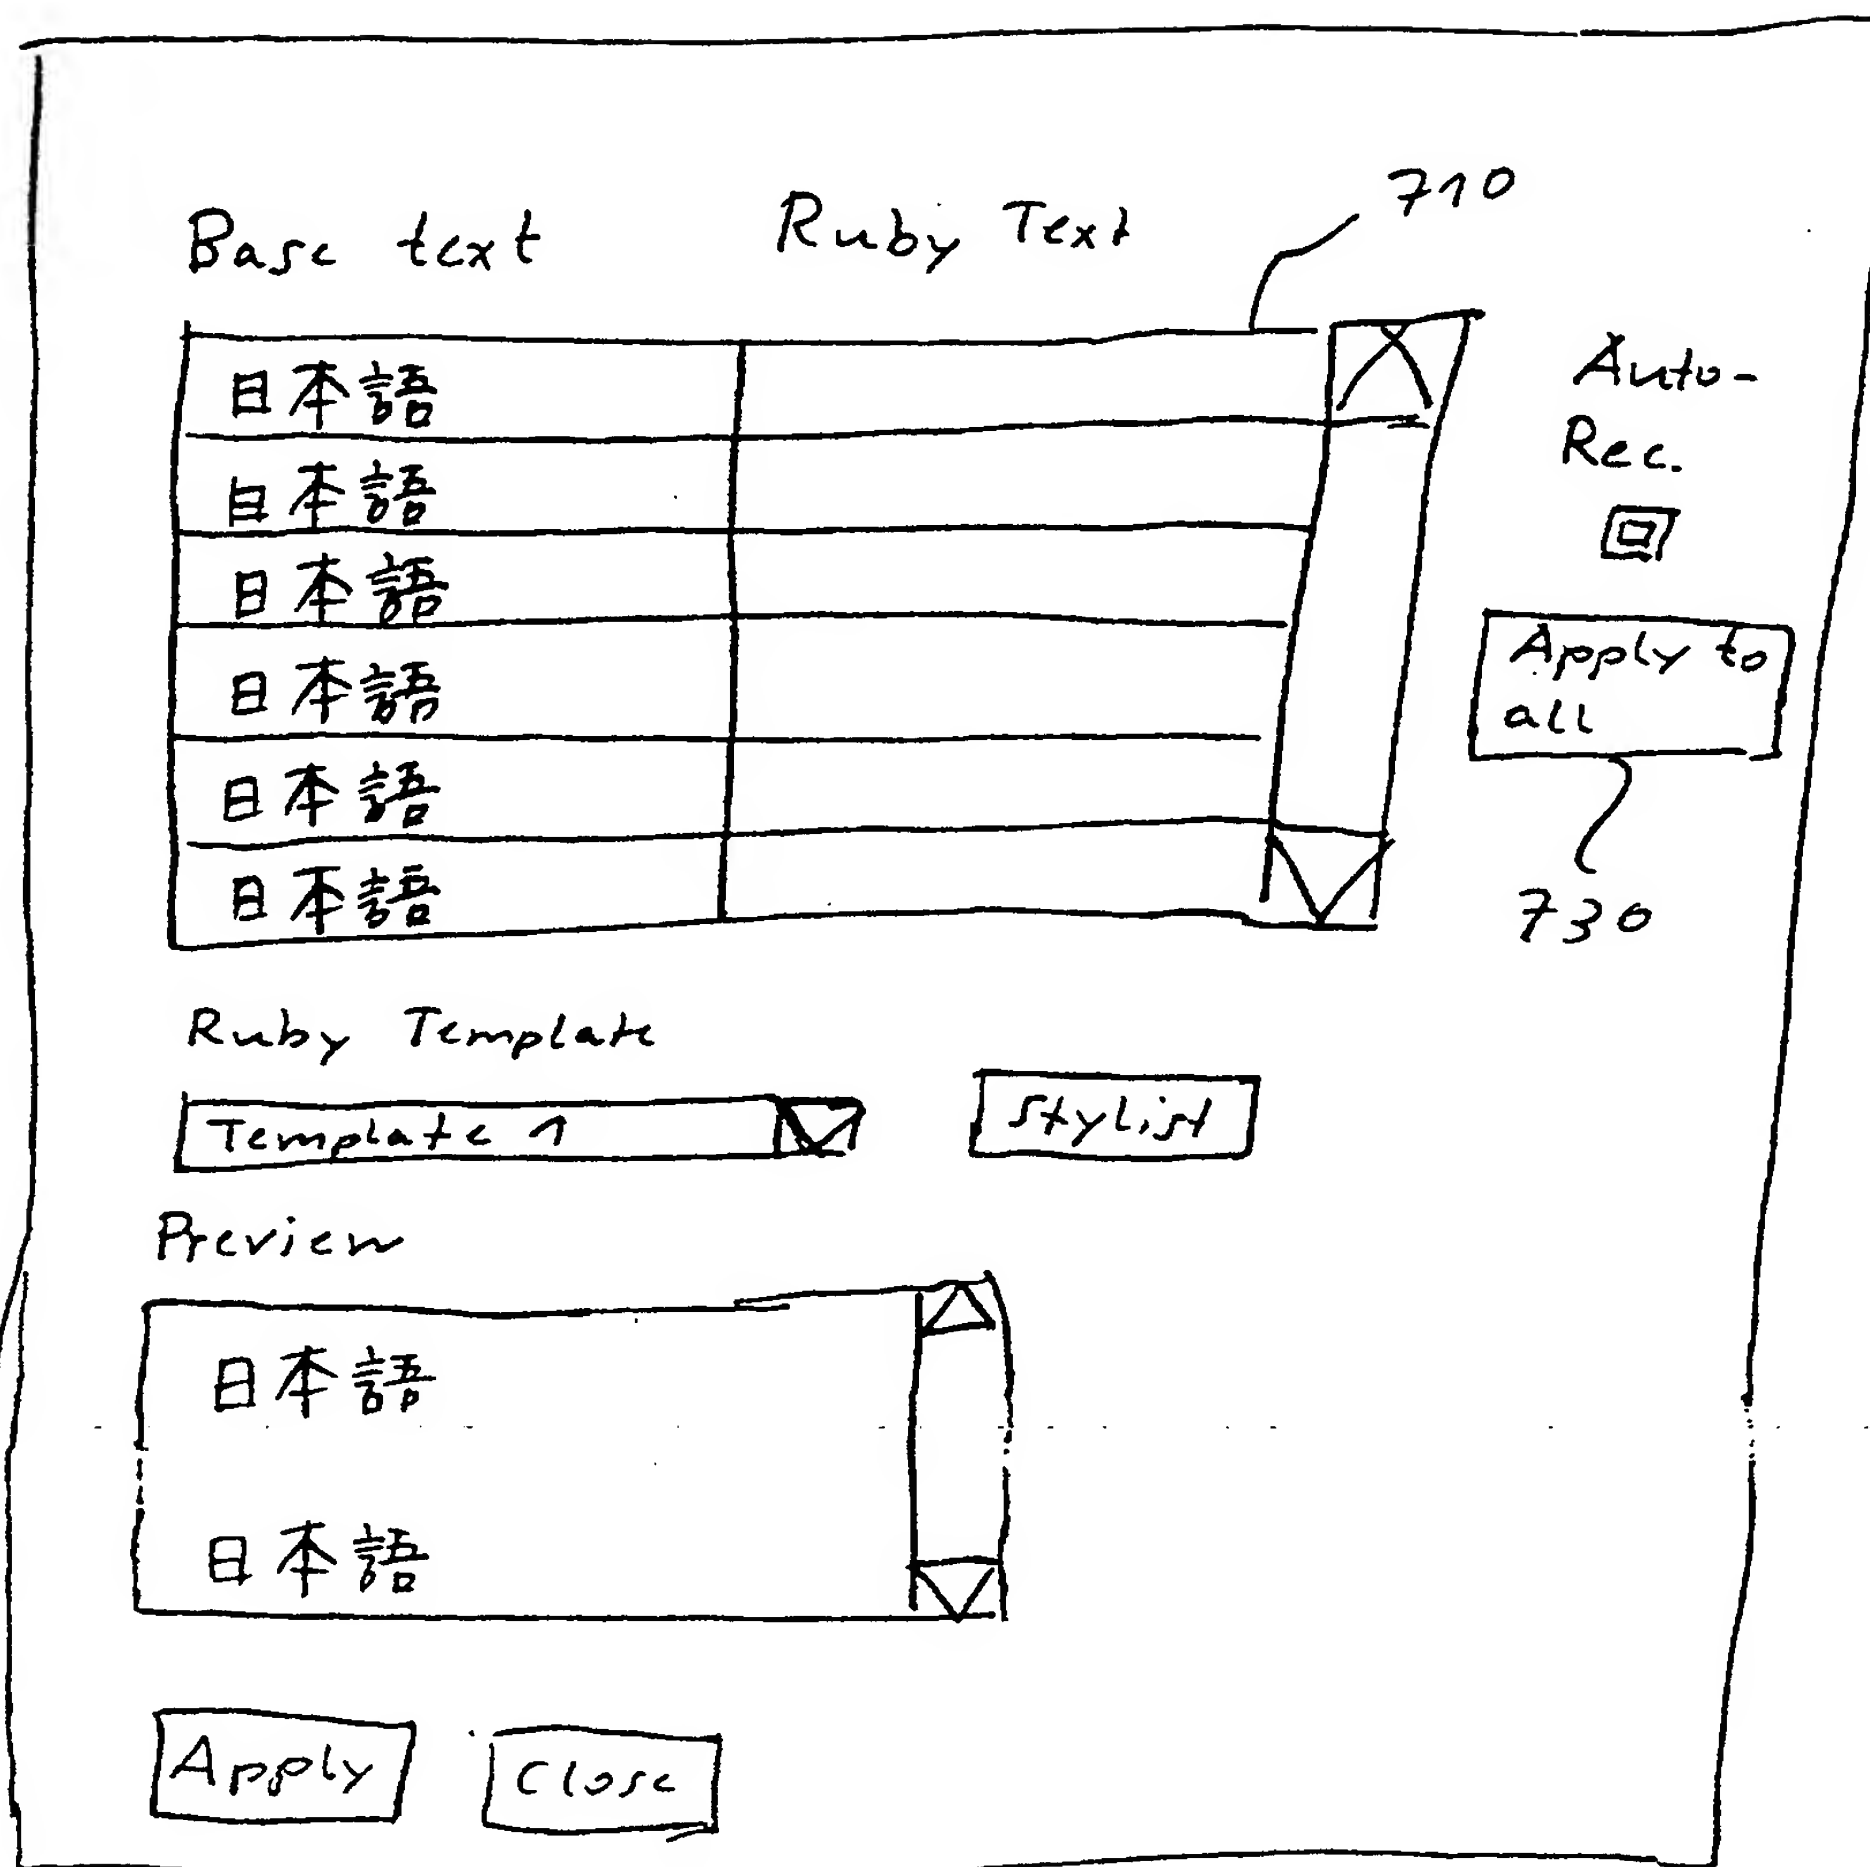 710
Base text Ruby Text
日本語
日本語
日本語
日本語
日本語
日本語
Auto-
Rec.
Apply to
all
730
Ruby Template
Template 1
Stylist
Preview
日本語
日本語
Apply
Close